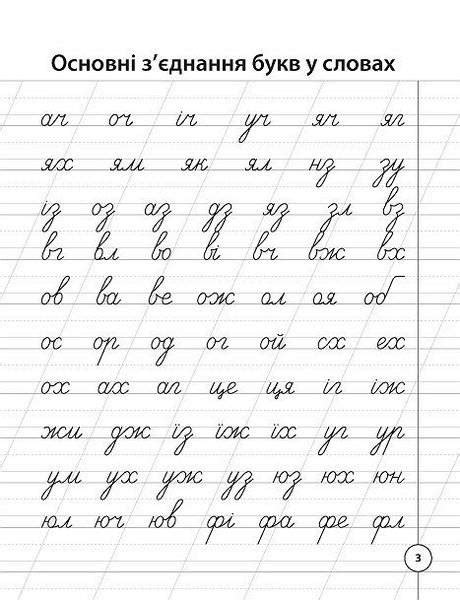 Основні з’єднання букв у словах
ач оч іч уч яч яг
ях ям як ял нз зу
із оз аз дз яз зл вз
вг вл во ві вч вж вх
ов ва ве ож ол оя об
ос ор од ог ой сх ех
ох ах аг це ця іг іж
жи дж їз їж їх уг ур
ум ух уж уз юз юх юн
юл юч юв фі фа фе фл
3